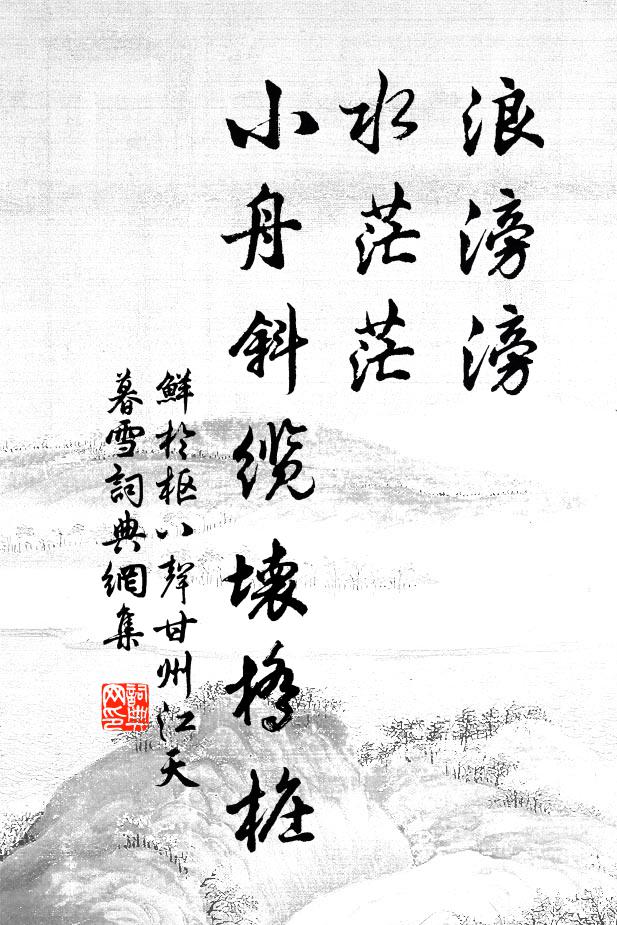 浪滂滂
水茫茫
小舟斜缆壊橋桩
鮮於枢八聲甘州江天
暮雪詞典網集
詞典网印